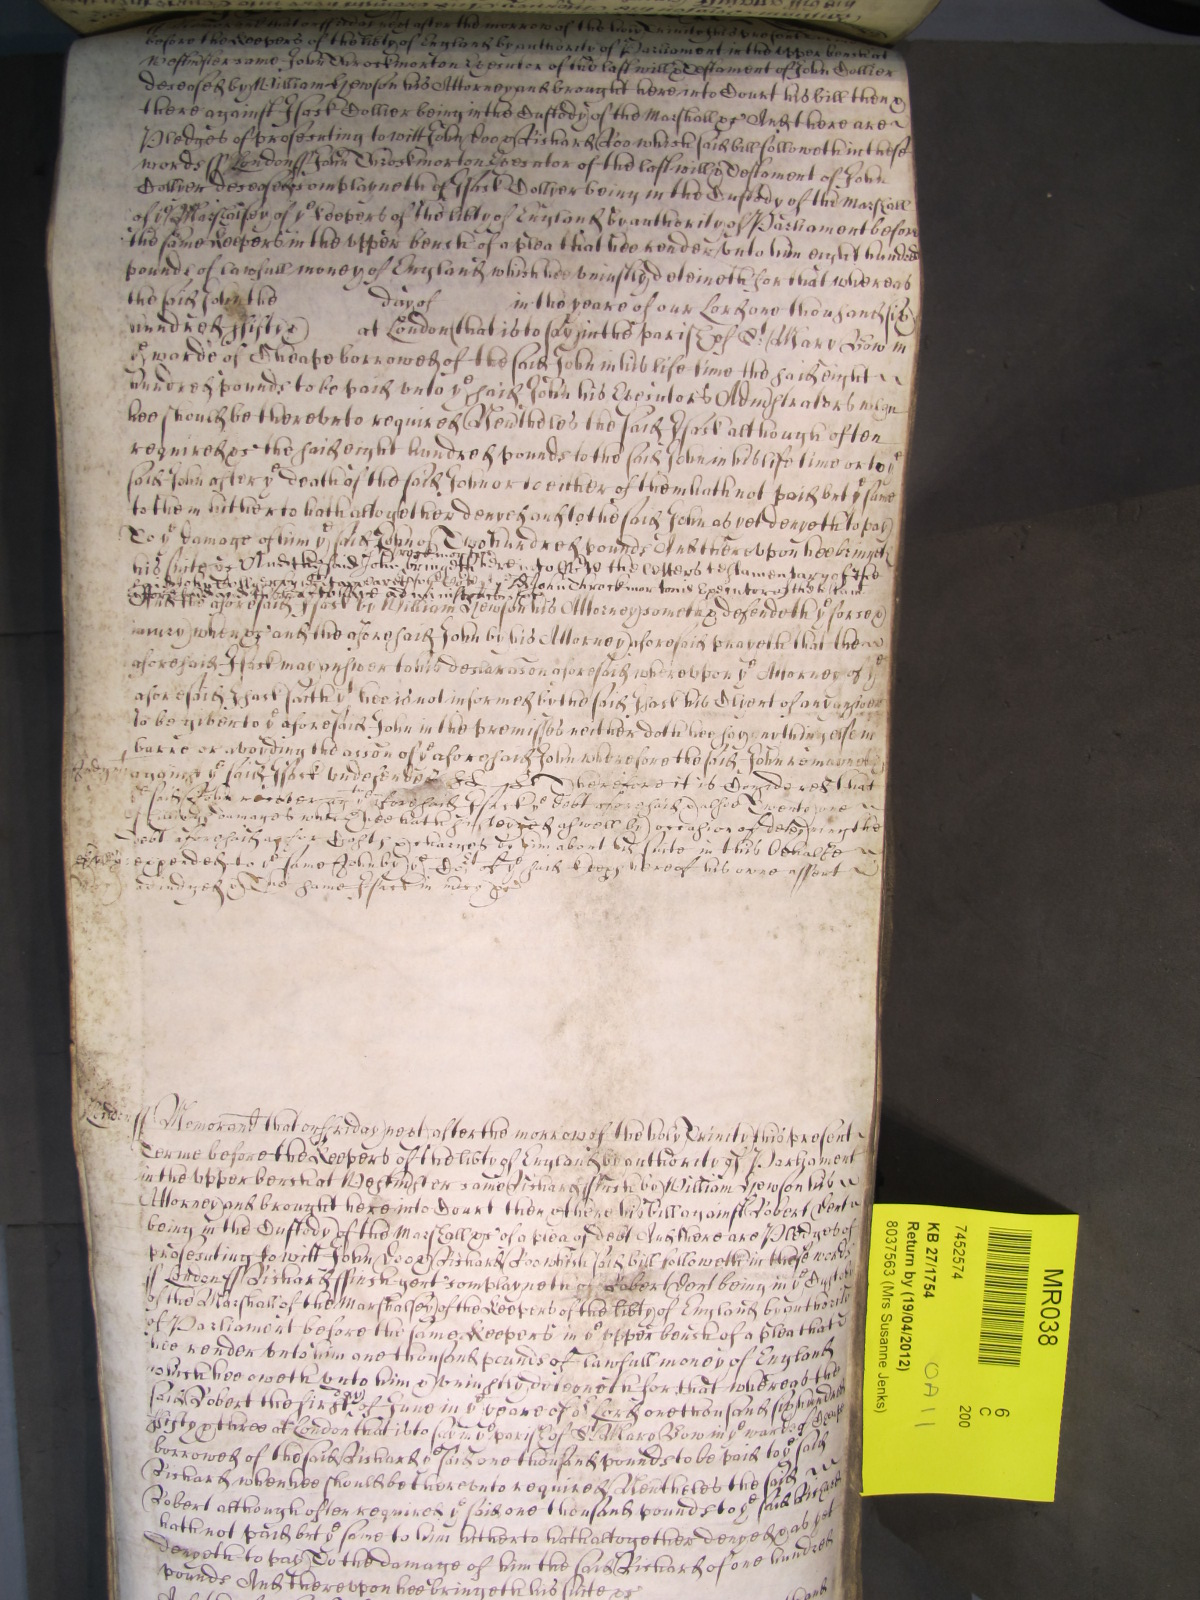 before the Keepers of the libty of England by authority of Parliament in the upper bench at
Westminster came John Throckmorton Executor of the last will & Testament of John Collier
deceased by William Hewson his Attorney and brought here into Court his bill then &
there against Isack Collier being in the Custody of the Marshall &c And there are
Pledges of prosecuting to witt John Doo & Richard Roo which said bill followeth in these
words ss London ss John Throckmorton Executor of the last will & Testament of John
Collier deceased complayneth of Isack Collier being in the Custody of the Marshall
of ye Marshalsey of ye keepers of the libty of England by authority of Parliament before
the same Keepers in the upper bench of a plea that hee render unto him eight hundred
pounds of lawfull money of England which hee uniustly deteineth for that whereas
the said John the day of in the yeare of our Lord one thousand six
hundred fiftie at London that is to say in the parish of St Mary Bow in
ye warde of Cheape borrowed of the said John in his life time the said eight
hundred pounds to be paid unto ye said John his Executors Administrators when
hee should be thereunto required Neutheles the said Isack although often
required &c the said eight hundred pounds to the said John in his life time or to ye
said John after ye death of the said John or to either of them hath not paid but ye same
to them hitherto hath altogether denyed and to the said John as yet denyeth to pay
To ye damage of him ye said John of Two hundred pounds And thereupon hee bringeth
his suite &c And the said John Throckmorton bringeth here into Court the letters testamentary of the
said John Collier
And the aforesaid Isack by William Hewson his Attorney cometh & defendeth ye force &
iniury when &c and the aforesaid John by his Attorney aforesaid prayeth that the
aforesaid Isack may answer to his declaracon aforesaid whereupon ye Attorney of ye
aforesaid Isack saith yt hee is not informed by the said Isack his Clyent of any answer
to be given to ye aforesaid John in the premisses neither doth hee say any thing else in
barre or avoyding the accon of ye aforesaid John wherefore the said John remayneth
against ye said Isack undefended &c Therefore it is Considered that
ye said John recover against ye aforesaid Isack ye debt aforesaid & alsoe Twenty one
damages which hee hath susteyned aswell by occasion of deteyning the
debt aforesaid as for Costs & charges by him about his suite in this behalfe
expended to ye same John by ye Court of ye said keeps hereof his owne assent
adiudged & The same Isack in mercy &c
London ss Memorand that on Friday next after the morrow of the holy Trinity this present
Terme before the Keepers of the libty of England by authority of Parliament
in the upper bench at Westminster came Richard Finch by William Hewson his
Attorney and brought here into Court then & there his bill against Robert Dent
being in the Custody of the Marshall &c of a plea of debt And there are Pledges of
prosecuting to witt John Doo & Richard Roo which said bill followeth in these words
ss London ss Richard Finch gent complayneth of Robert Dent being in ye Custody
of the Marshall of the Marshalsey of the Keepers of the libty of England by authority
of Parliament before the same Keepers in ye upper bench of a plea that
hee render unto him one thousand pounds of lawfull money of England
which hee oweth unto him & uniustly deteineth for that whereas the
said Robert the first day of June in ye yeare of or Lord one thousand six hundred
fifty & three at London that is to say in ye parish of St Mary Bow in ye warde of Cheape
borrowed of the said Richard ye said one thousand pounds to be paid to ye said
Richard when hee should be thereunto required Neutheles the said
Robert although often required ye said one thousand pounds to ye said Richard
hath not paid but ye same to him hitherto hath altogether denyed & as yet
denyeth to pay To the damage of him the said Richard of one hundred
pounds And thereupon hee bringeth his suite &c
MR038
6
C
200
7452574
KB 27/1754
Return by (19/04/2012)
8037563 (Mrs Susanne Jenks)
OA11